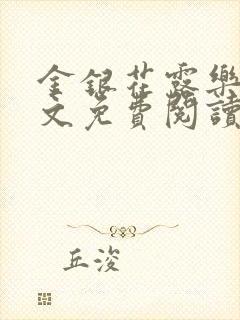 金銀花露樂
文免費閱讀
丘浚